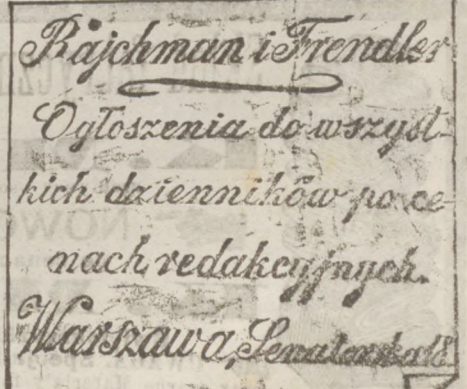 Rajchman i Frendler
Ogłoszenia do wszyst-
kich dzienników po ce-
nach redakcyjnych.
Warszawa, Senatorska 18